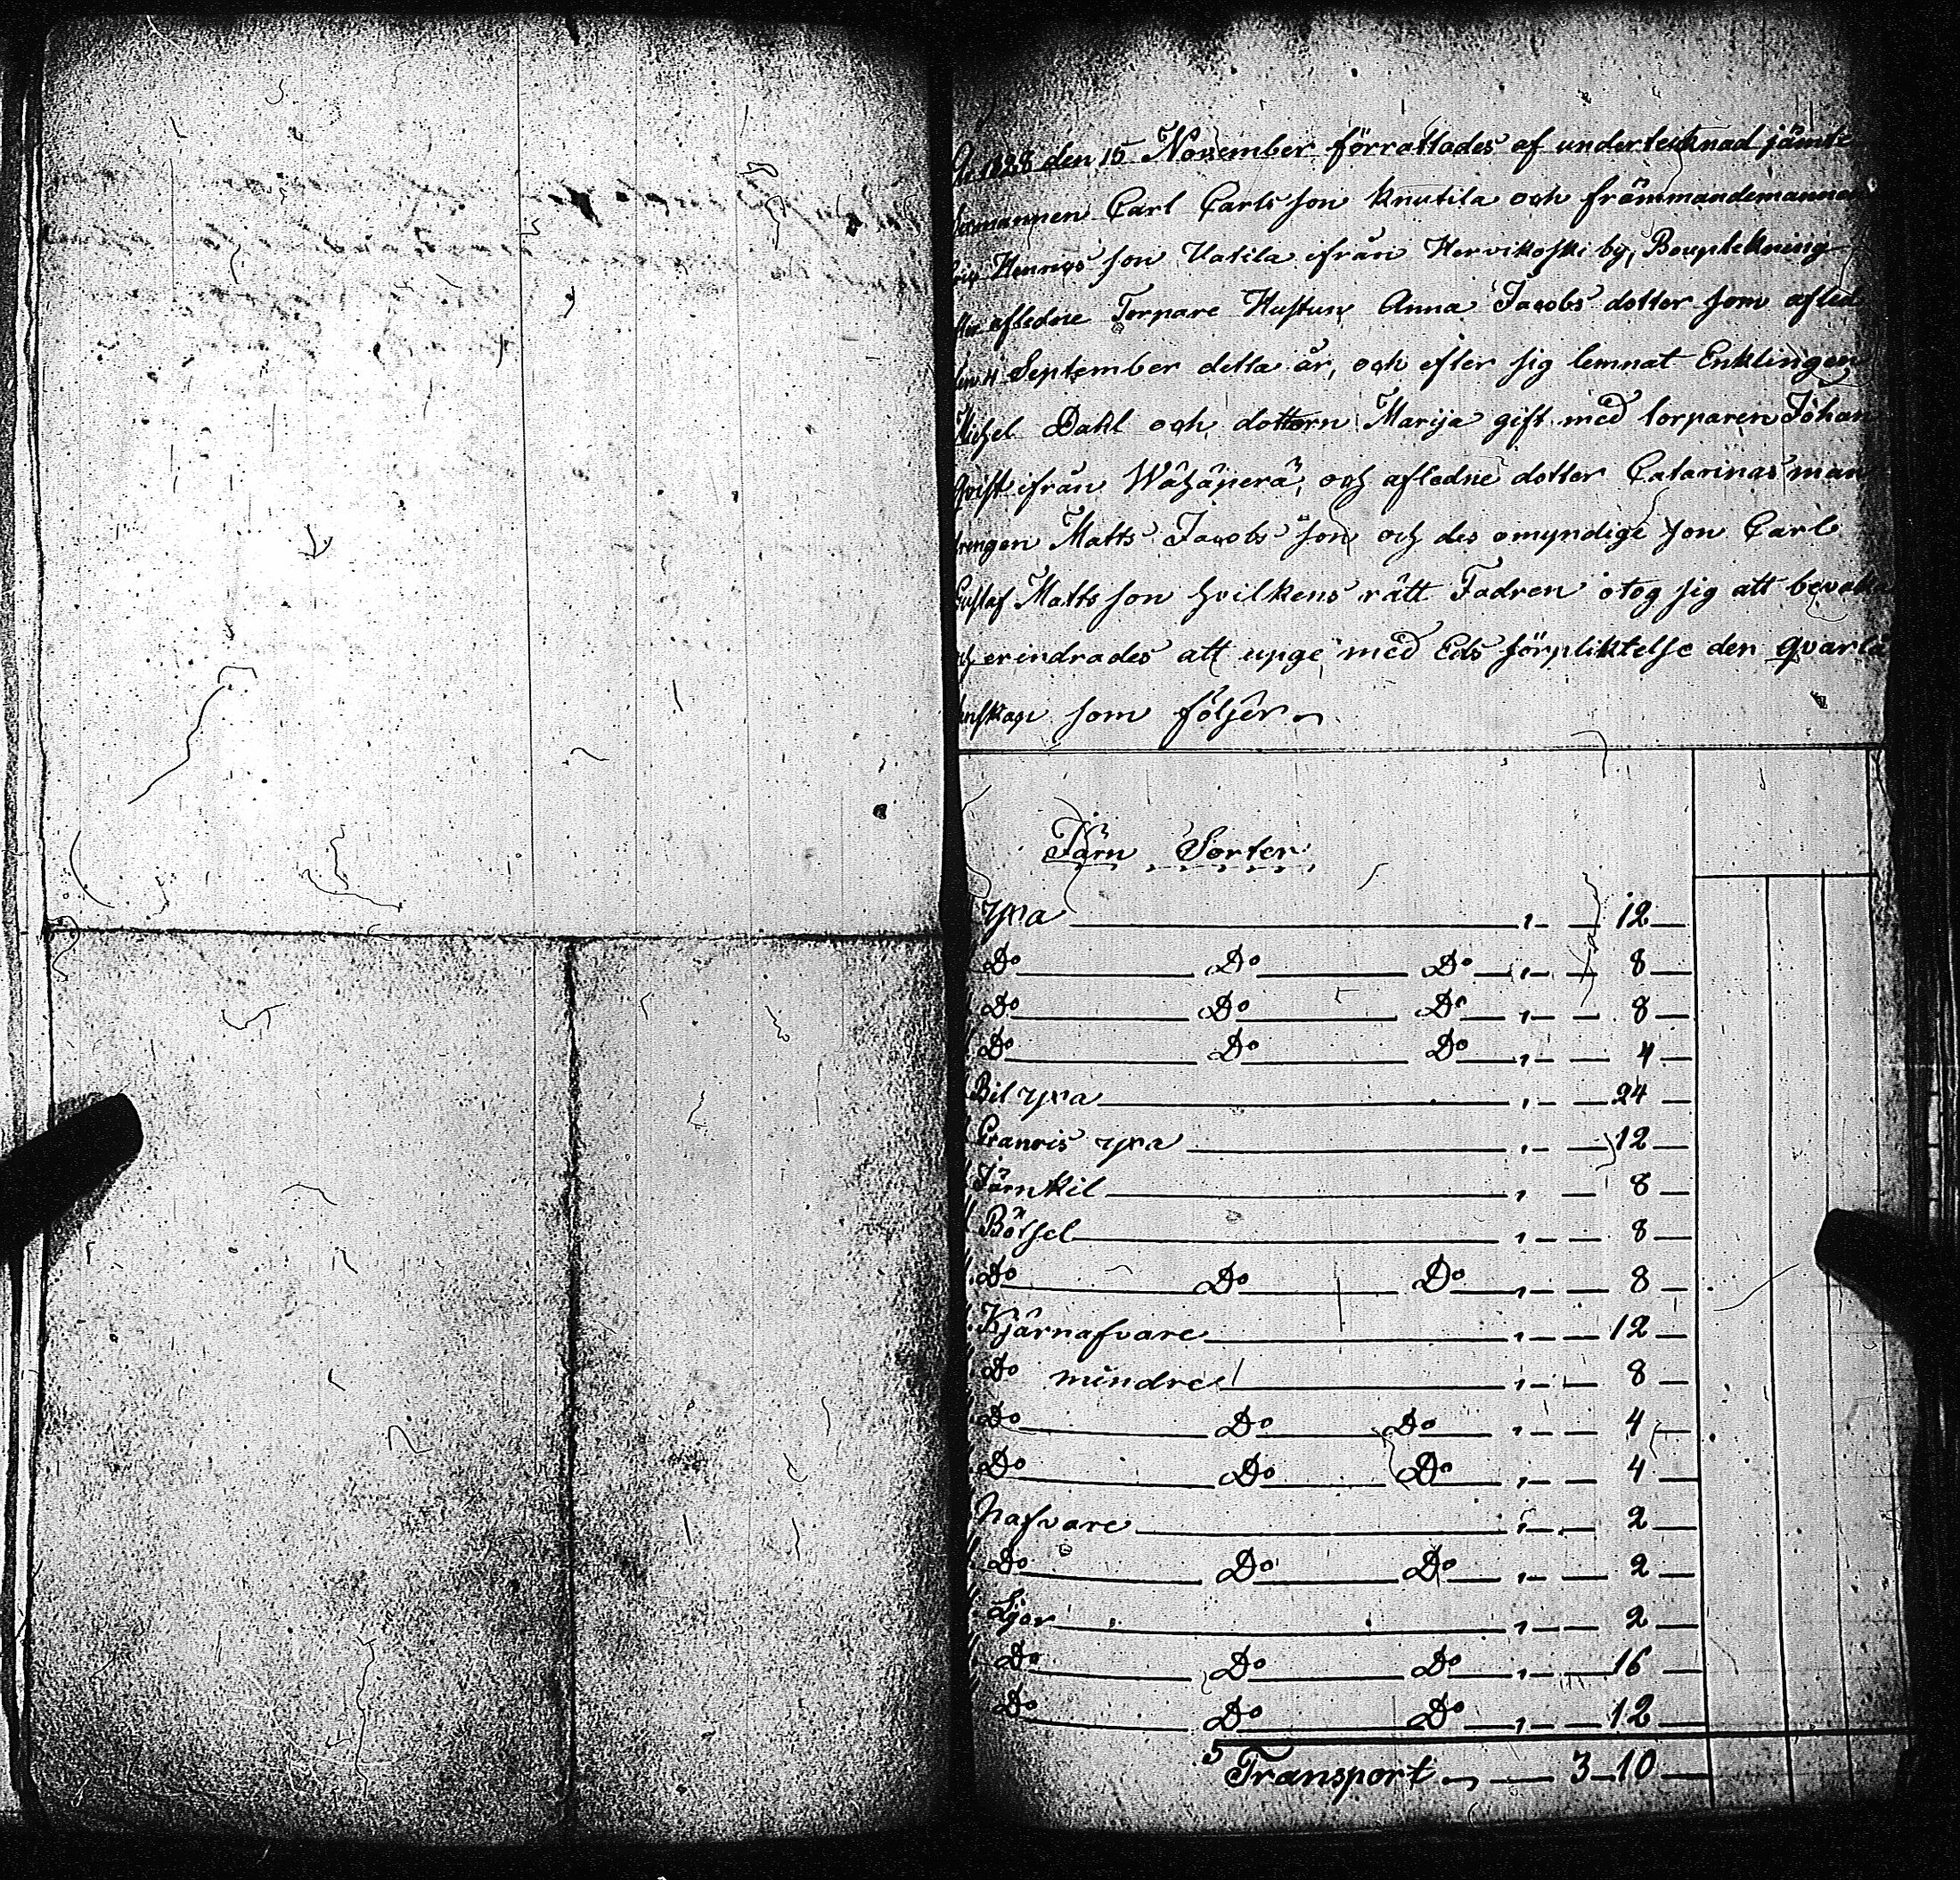 1828 den 15 November förrättades af undertecknad jämte
Carl Carlsson Knutila och främmandemannen
Hennrs son Uatila ifrån Hervikoski by, Bouptekning
efter afledne Torpare Hustun Anna Jacobs dotter som afled
den 4 September detta år, och efter sig lemnat Enklingen
Michel Dahl och dottern Marija gift med torparen Johan
Qvist ifrån Wähäperä, och afledne dotter Catarinas man
drengen Matts Jacobs son och des omyndige son Carl
Gustaf Matts son hvilkens rätt Fadren otog sig att bevaka
och erindrades att upge med Eds förpliktelse den qvarlå
enskap som följer
Järn Sorter
yxa 12
Do Do Do 8
Do Do Do 8
Do Do Do 4
Bil yxa 24
yxa 12
Järnkil 8
Bötsel 8
Do Do Do 8
Kjärnafvare 12
Do mindre 8
Do Do Do 4
Do Do Do 4
Nafvare 2
Do Do Do 2
Ljar 2
Do Do Do 16
Do Do Do 12
Transport 3 10